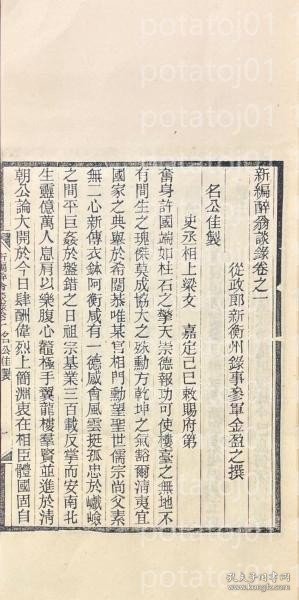 potatoj01
新編醉翁談錄卷之一
從政郎新衡州錄事參軍金盈之撰
名公佳製
史丞相上梁文 嘉定己巳敕賜府第
奮身許國端如柱石之擎天崇德報功可使樓臺之無地不
有間生之瑰傑莫成協大之殊勳方乾坤之氣豁爾清夷宜
國家之典舉於希闊恭唯某官相門勳望聖世儒宗尚父素
無二心新傳衣鉢阿衡咸有一德感會風雲挺孤忠於巇嶮
之間平巨姦於盤錯之日祖宗基業三百載反掌而安南北
生靈億萬人息肩以樂腹心韰極手翼龍樓羣賢並進於清
朝公論大開於今日肆酬偉烈上簡淵衷在相臣體國固自
名公佳製
一
孔夫子旧书网